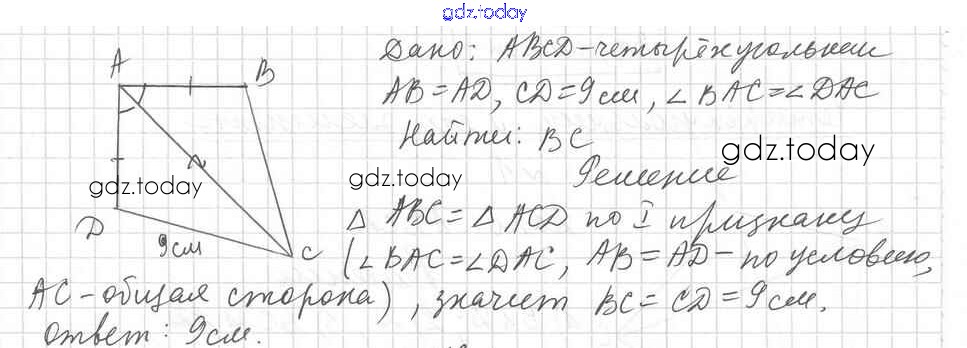 gdz.today
Дано: ABCD-четырёхугольник
AB=AD, CD=9см, ∠BAC=∠DAC
Найти: BC
gdz.today
Решение
△ABC=△ACD по I признаку
(∠BAC=∠DAC, AB=AD-по условию,
AC-общая сторона), значит BC=CD=9см.
Ответ: 9см.
A
B
gdz.today
D
9см
C
gdz.today